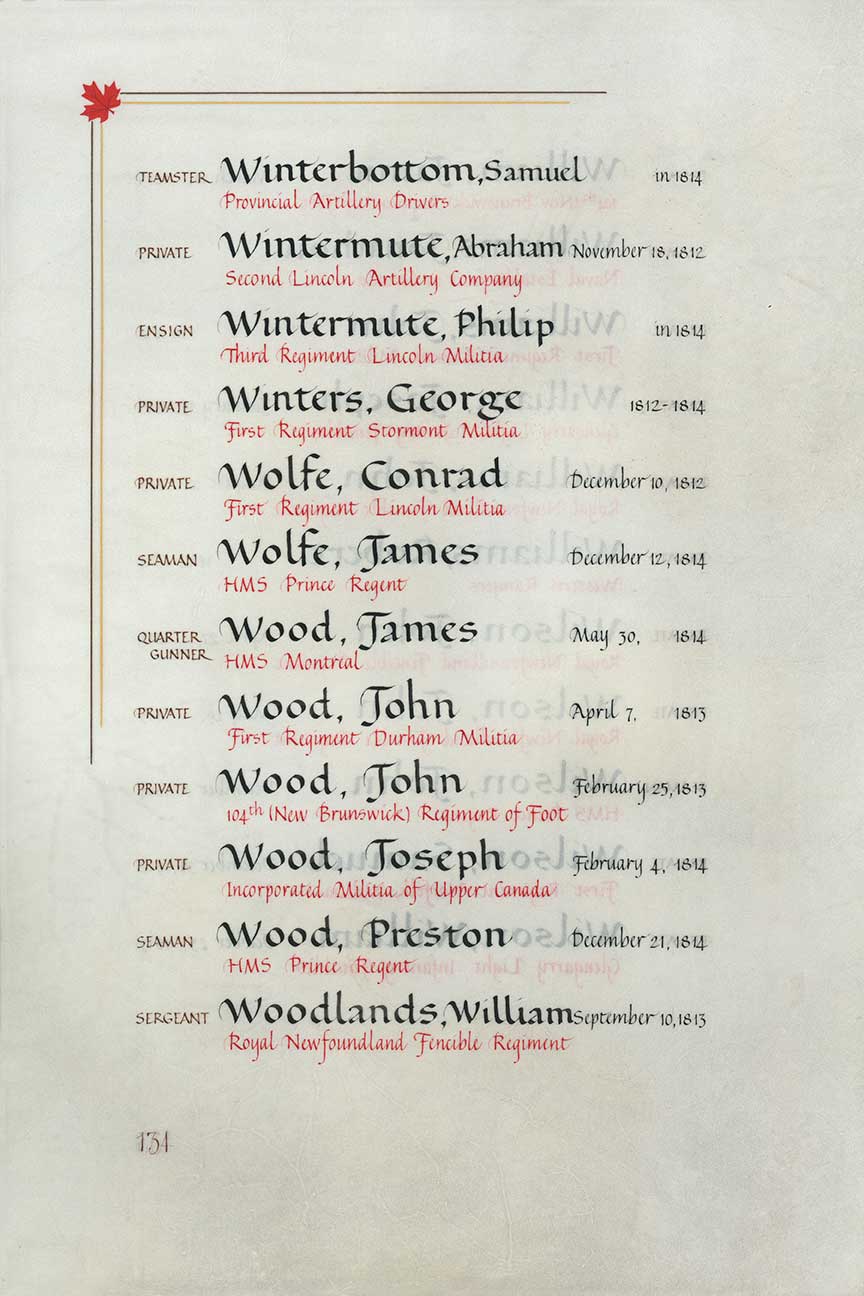 TEAMSTER Winterbottom, Samuel in 1814
Provincial Artillery Drivers
PRIVATE Wintermute, Abraham November 18, 1812
Second Lincoln Artillery Company
ENSIGN Wintermute, Philip in 1814
Third Regiment Lincoln Militia
PRIVATE Winters, George 1812-1814
First Regiment Stormont Militia
PRIVATE Wolfe, Conrad December 10, 1812
First Regiment Lincoln Militia
SEAMAN Wolfe, James December 12, 1814
HMS Prince Regent
QUARTER GUNNER Wood, James May 30, 1814
HMS Montreal
PRIVATE Wood, John April 7, 1813
First Regiment Durham Militia
PRIVATE Wood, John February 25, 1813
104th (New Brunswick) Regiment of Foot
PRIVATE Wood, Joseph February 4, 1814
Incorporated Militia of Upper Canada
SEAMAN Wood, Preston December 21, 1814
HMS Prince Regent
SERGEANT Woodlands, William September 10, 1813
Royal Newfoundland Fencible Regiment
131